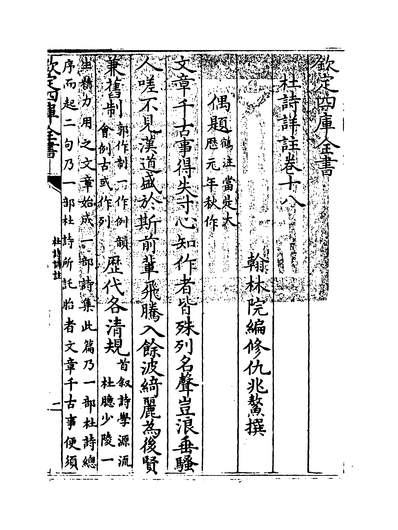 欽定四庫全書
杜詩詳註卷十八
翰林院編修仇兆鰲撰
偶題
鶴注當是大
厯元年秋作
文章千古事得失寸心知作者皆殊列名聲豈浪垂騷
人嗟不見漢道盛於斯前輩飛騰入餘波綺麗為後賢
兼舊制
郭作制一作例韻
會例古或作列
歷代各清規
首叙詩學源流
杜臆少陵一
生積力用之文章始成一部詩集此篇乃一部杜詩總
序而起二句乃一部杜詩所託胎者文章千古事便須
欽定四庫全書
杜詩詳註